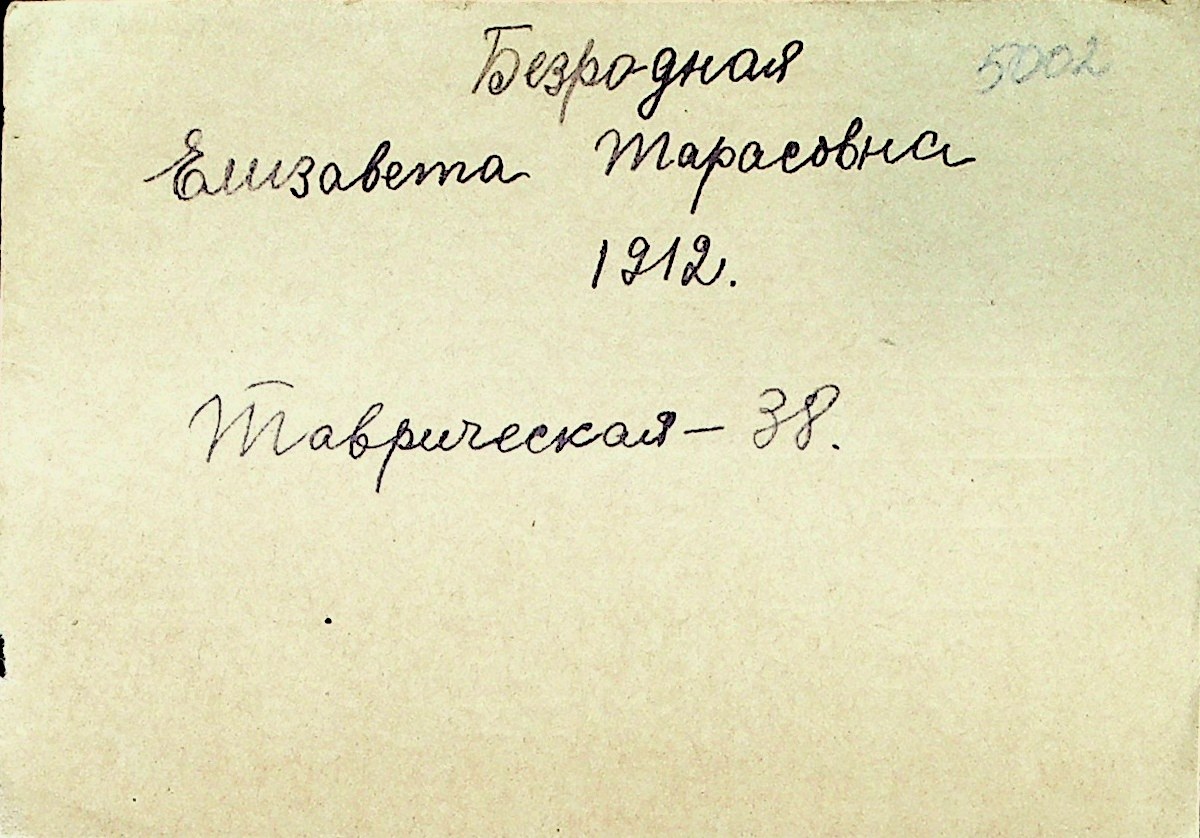 Безродная 5002
Елизавета Тарасовна
1912.
Таврическая – 38.